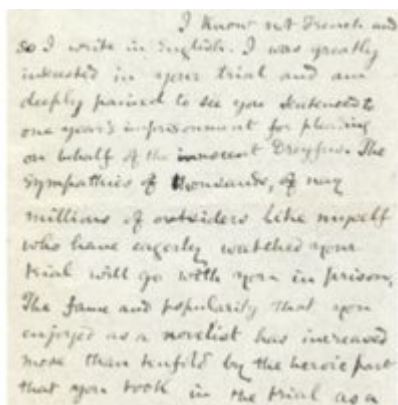 I know not French and
so I write in English. I was greatly
interested in your trial and am
deeply pained to see you sentenced to
one year's imprisonment for pleading
on behalf of the innocent Dreyfus. The
sympathies of thousands, of nay
millions of outsiders like myself
who have eagerly watched your
trial will go with you in prison.
The fame and popularity that you
enjoyed as a novelist has increased
more than tenfold by the heroic part
that you took in the trial as a